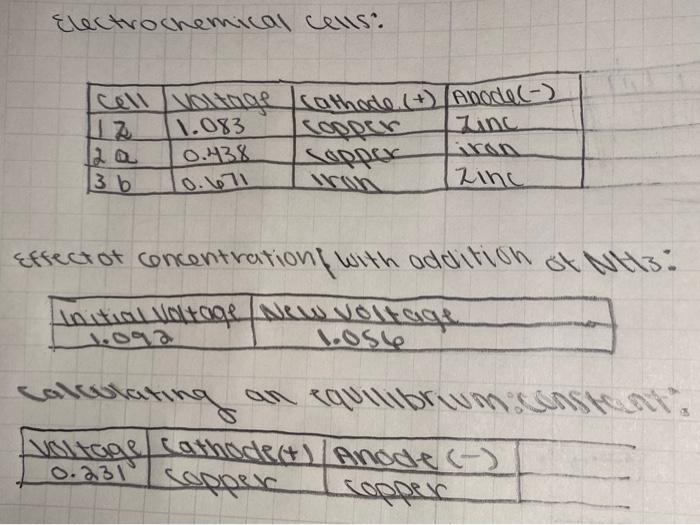 Electrochemical cells:
Cell Voltage Cathode (+) Anode (-)
1 z 1.083 copper Zinc
2 a 0.438 copper iron
3 b 0.671 iron Zinc
Effect of concentration with addition of NH3:
Initial Voltage New Voltage
1.092 1.056
Calculating an equilibrium constant:
Voltage Cathode(+) Anode (-)
0.231 copper copper